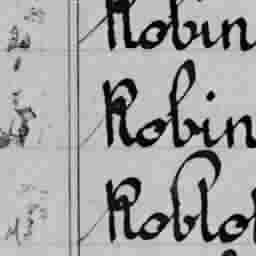 Robin
Robin
Roblo